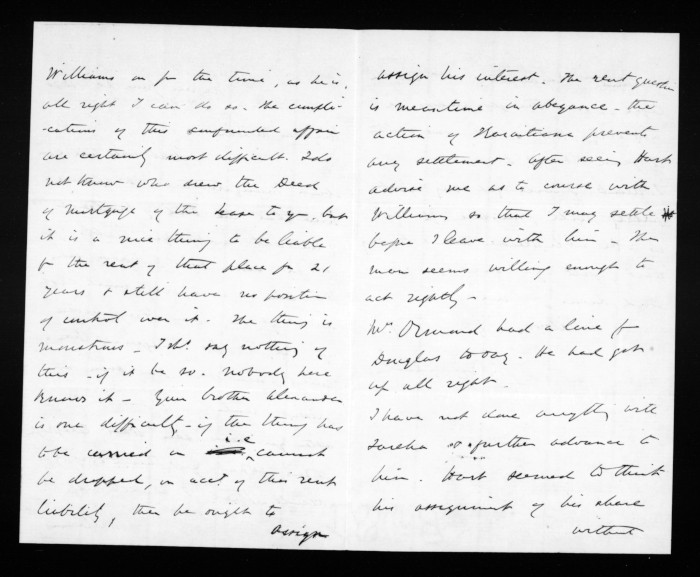 Williams on for the time, as he is,
all right I can do so. The compli-
-cations of this confounded affair
are certainly most difficult. I do
not know who drew the Deed
of Mortgage of the Lease to you, but
it is a nice thing to be liable
for the rent of that place for 21
years & still have no position
of control over it. The thing is
monstrous - I shd. say nothing of
this - if it be so. nobody here
knows it - Your brother Alexander
is one difficulty - if the thing has
to be carried on i.e cannot
be dropped, on acct. of this rent
liability, then he ought to
assign
assign his interest. The rent question
is meantime in abeyance - the
action of Karaitiana prevent
any settlement. After seeing Hart
advise me as to course with
Williams so that I may settle
before I leave with him - The
man seems willing enough to
act rightly -
Mr. Ormond had a line fr
Douglas today. He had got
up all right.
I have not done anything with
Tareha so further advance to
him. Hart seemed to think
his assignment of his share
without